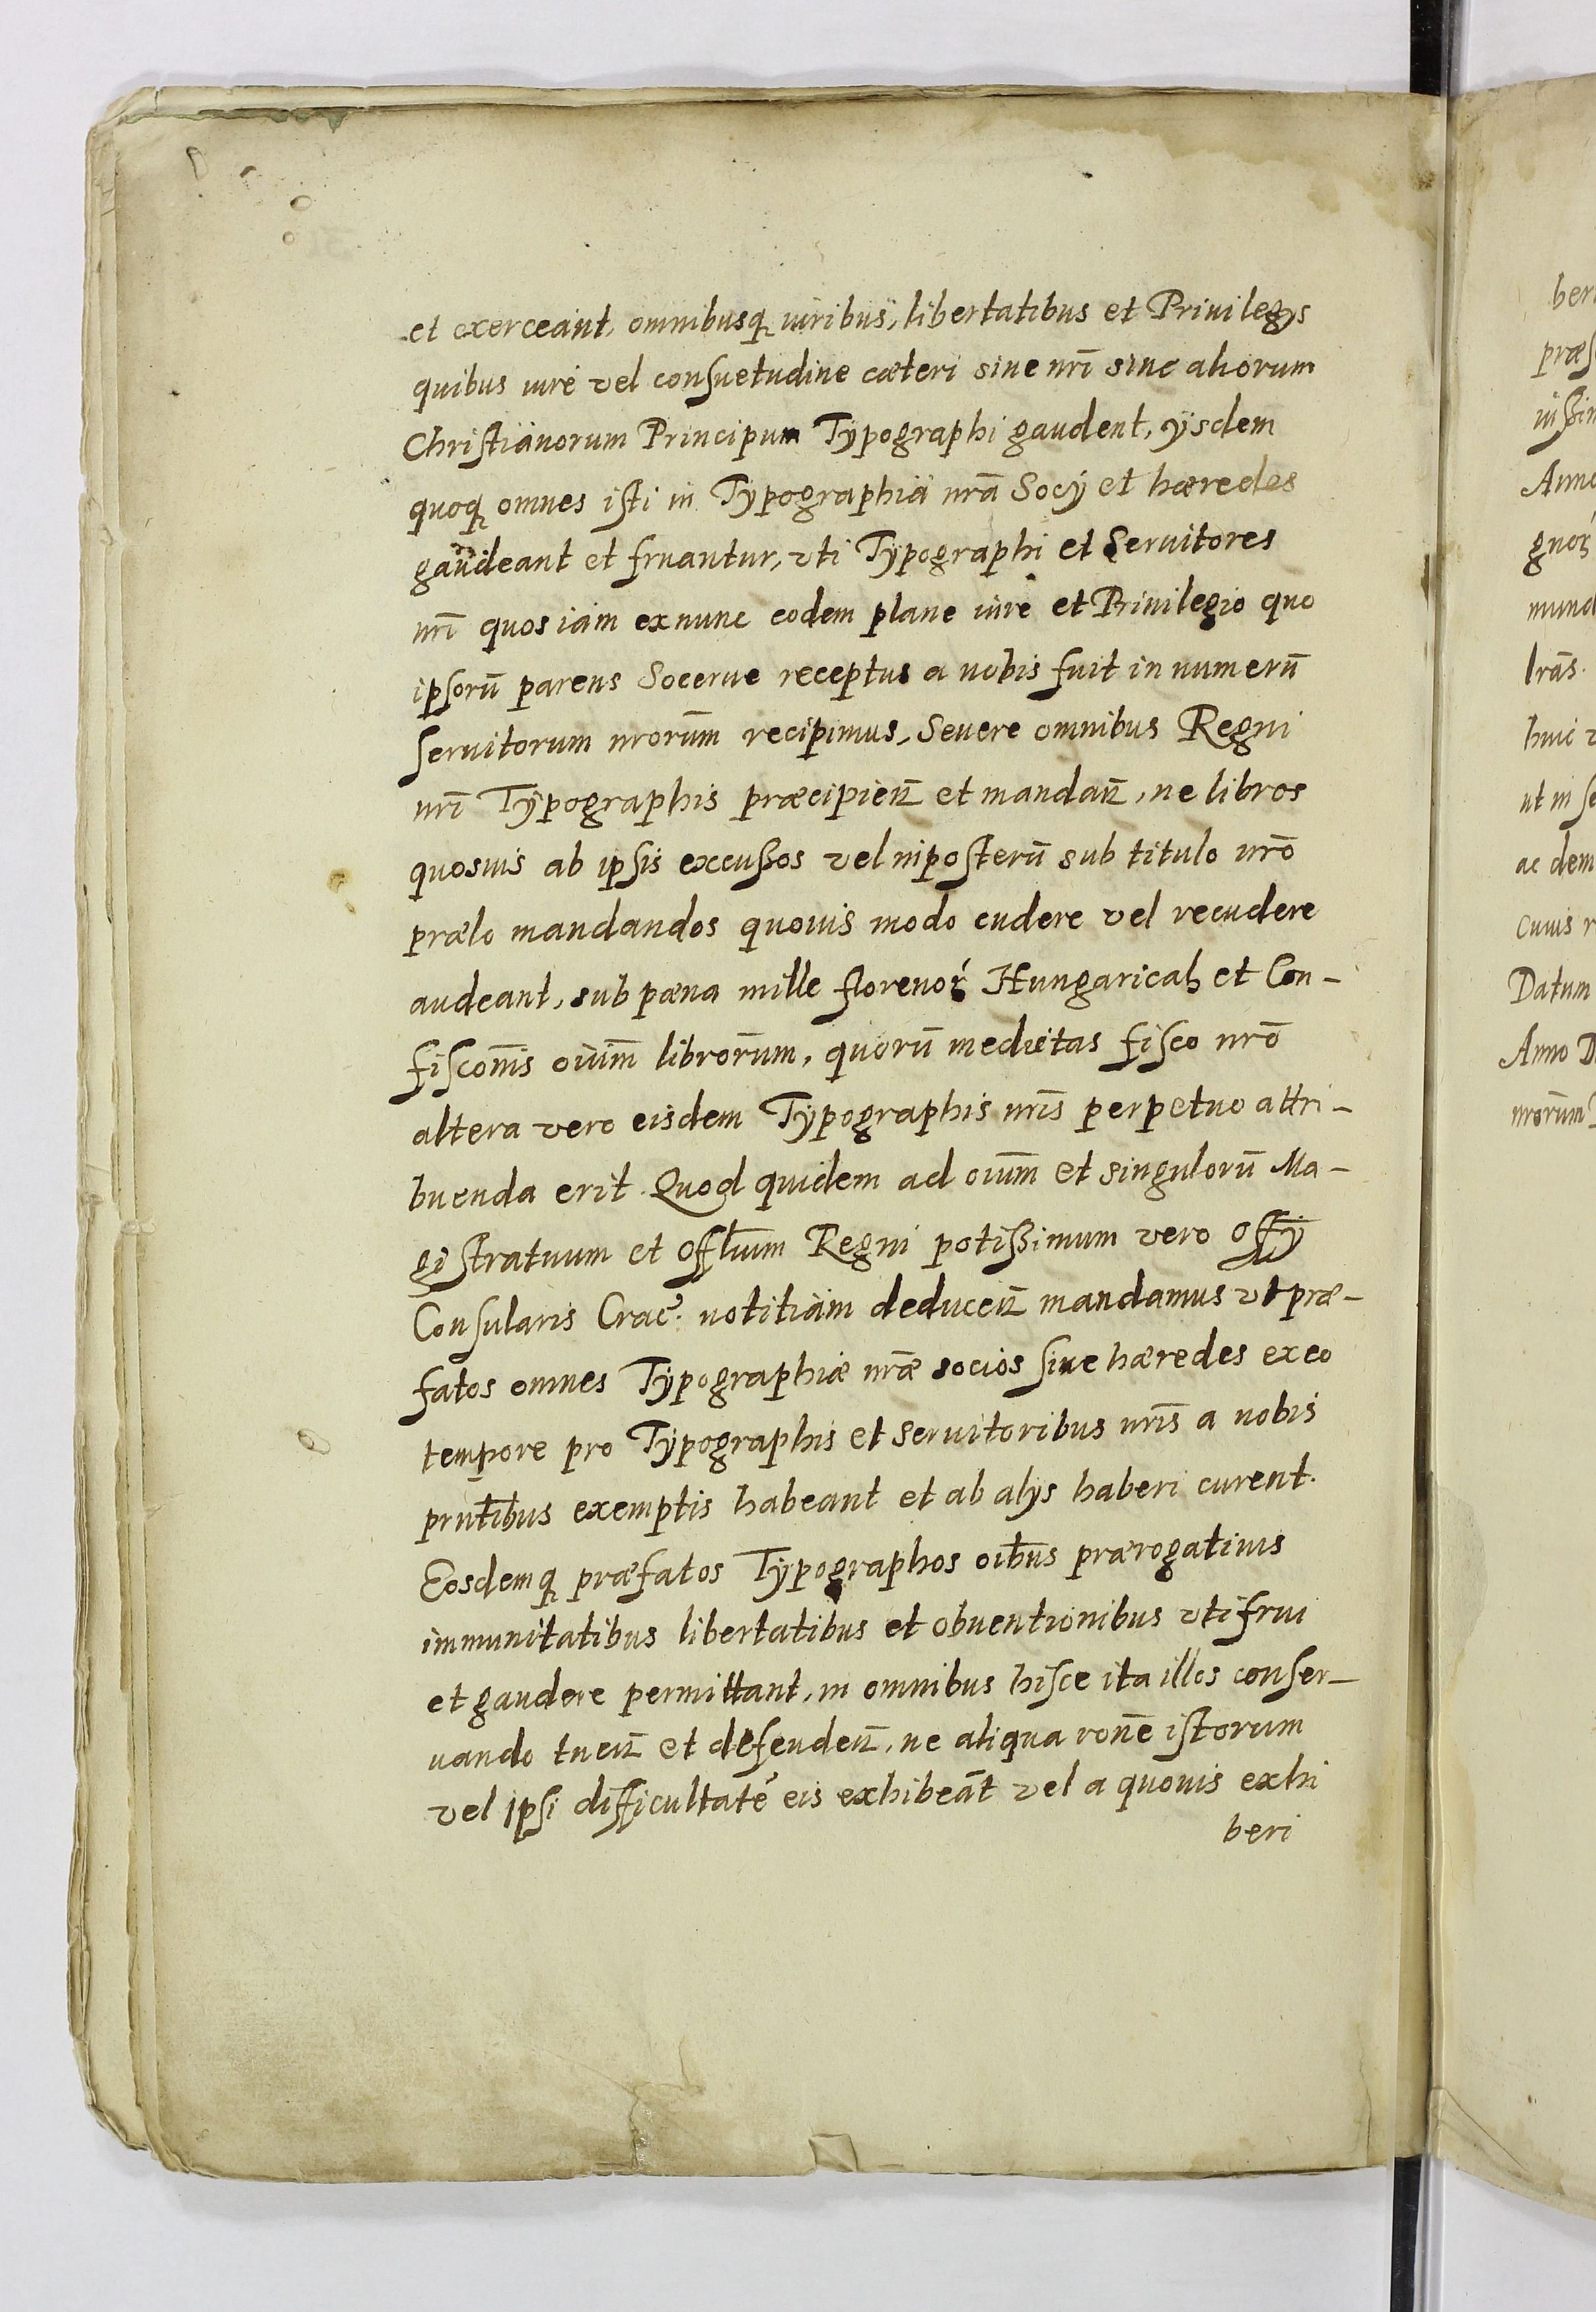 et exerceant, omnibusq iuribus, libertatibus et Priuilegÿs
quibus iure vel consuetudine cæteri siue nr̄i siue aliorum
Christianorum Principum Typographi gaudent, ÿsdem
quoq omnes isti in Typographia nr̄a Socÿ et hæredes
gaudeant et fruantur, vti Typographi et Seruitores
nr̄i quos iam ex nunc eodem plane iure et Priuilegio quo
ipsorū parens Socerue receptus a nobis fuit in numerū
seruitorum nr̄orum recipimus, Seuere omnibus Regni
nr̄i Typographis præcipieñ et mandañ, ne libros
quosuis ab ipsis excußos vel inposterū sub titulo nr̄o
prælo mandandos quouis modo cudere vel recudere
audeant, sub pæna mille florenoꝝ Hungaricaƚ et Con-
fisco͞nis oi͞um librorum, quorū medietas fisco nr̄o
altera vero eisdem Typographis nr̄is perpetuo attri-
buenda erit. Quod quidem ad oi͞um et singulorū Ma-
gistratuum et Offlium Regni potißimum vero Offÿ
Consularis Crac̄. notitiam deduceñ mandamus vt præ-
fatos omnes Typographiæ nr̄æ socios siue hæredes ex eo
tempore pro Typographis et seruitoribus nr̄is a nobis
prn̄tibus exemptis habeant et ab alÿs haberi curent.
Eosdemq præfatos Typographos oi͞bus prærogatiuis
immunitatibus libertatibus et obuentionibus vti frui
et gaudere permittant, in omnibus hisce ita illos conser-
uando tueñ et defendeñ, ne aliqua ro͞ne istorum
vel ipsi difficultatē eis exhibeāt vel a quouis exhi
beri
ber
præs
Anno
gnoꝝ
lr̄as.
huic
ac dem
cuius
Datum
Anno D
nr̄orum